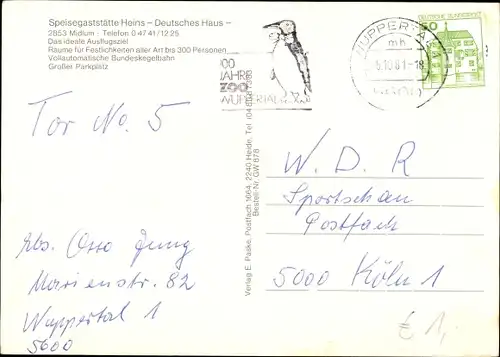 Speisegaststätte Heins – Deutsches Haus –
2853 Midlum · Telefon 0 47 41 / 12 25
Das ideale Ausflugsziel
Räume für Festlichkeiten aller Art bis 300 Personen
Vollautomatische Bundeskegelbahn
Großer Parkplatz
Tor No. 5
Abs. Otto Jung
Marienstr. 82
Wuppertal 1
5600
Verlag E. Paske, Postfach 1664, 2240 Heide, Tel.
Bestell-Nr. GW 878
100
JAHRE
ZOO
WUPPERTAL
WUPPERTAL
mh
-18
50
DEUTSCHE BUNDESPOST
W. D. R
Sportschau
Postfach
5000 Köln 1
€ 1,-